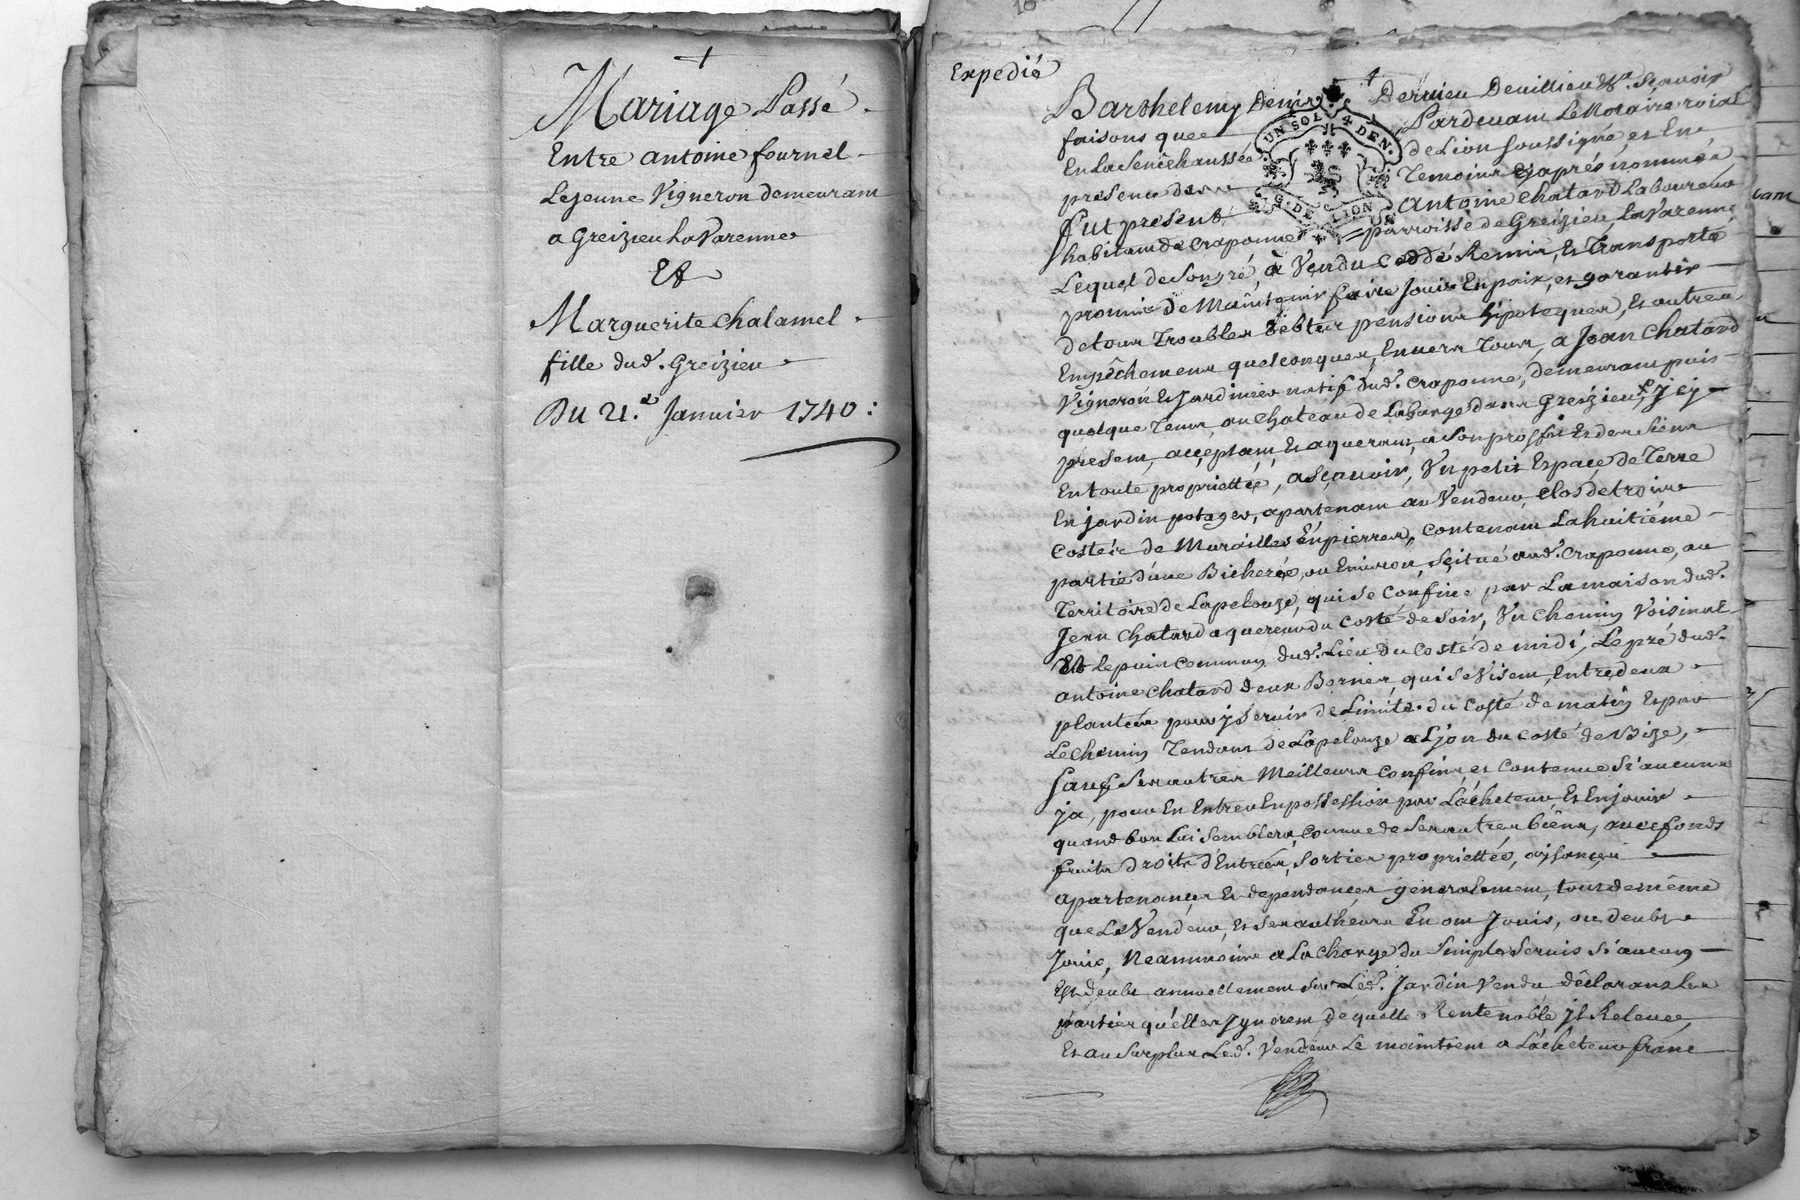 Mariage Passé
Entre antoine fournel
Lejeune Vigneron demeurant
a Greizieu LaVarenne
Et
Marguerite chalamel
fille dud. Greizieu
Du 21.e Januier 1740:
Expedié
Barthelemy Denis Dervieu Deuillieu Scauoir
faisons que Pardeuant Le Notaire roial
En La Senêchaussée de Lion soussigné, et En
presence des Temoins Cyaprés nommés
UN SOL 4 DEN.
G. DE LION
fut present antoine chatard Laboureur
habitant de Craponne parroisse de Greizieu LaVarenne
Lequel de Son gré, à Vendu Ceddé Remis, Et Transporté
promis de Maintenir faire Jouir En paix, et garantir
de tous Troubles debtes pensions hipoteques, Et autres
Empêchemens quelconques, Enuers Tous, a Jean Chatard
Vigneron Et Jardinier natif dud. Craponne, demeurant puis
quelque Tems, au Chateau de Labarge dans Greizieu, Jcy
present, acceptant Et aquerant, a Son proffit Et des Siens
En toute propriettée, a Sçauoir, Un petit Espace de Terre
En jardin potager, apartenant au Vendeur Clos de trois
Costés de Murailles En pierres, Contenant La huitiéme
partie d'une Bicherée, ou Enuiron, Scitué aud. Craponne, au
Territoire de Lapelouze, qui se Confine par La maison dud.
Jean Chatard aquereur du Costé de Soir, Un Chemin Voisinal
Et le puis Commun dud. Lieu du Costé de midi, Le pré dud.
antoine chatard deux Bornes, qui se Visent, Entredeux
plantées pour y Seruir de Limite du Costé de matin Et par
Le Chemin Tendant de Lapelouze a Lyon du Costé de Bize,
Sauf Ses autres Meilleurs Confins et Contenue Si aucuns
ja, pour En Entrer En possession par L'acheteur Et En jouir
quand bon Lui Semblera, Comme de Ses autres biens, auec fonds
fruits droits d'Entrées, Sorties propriettés, aisances
apartenances Et dependances generalement, tout de même
que Le Vendeur, Et Ses autheurs En ont Joui, ou deub
Jouir, Neanmoins a La Charge du Simple Seruis Si aucun
Est deub annuellement Sur Led. Jardin Vendu déclarans Les
parties qu'elles Jgnorent de quelle Rente noble Jl Releue,
Et au Surplus Led. Vendeur Le maintient a L'acheteur franc